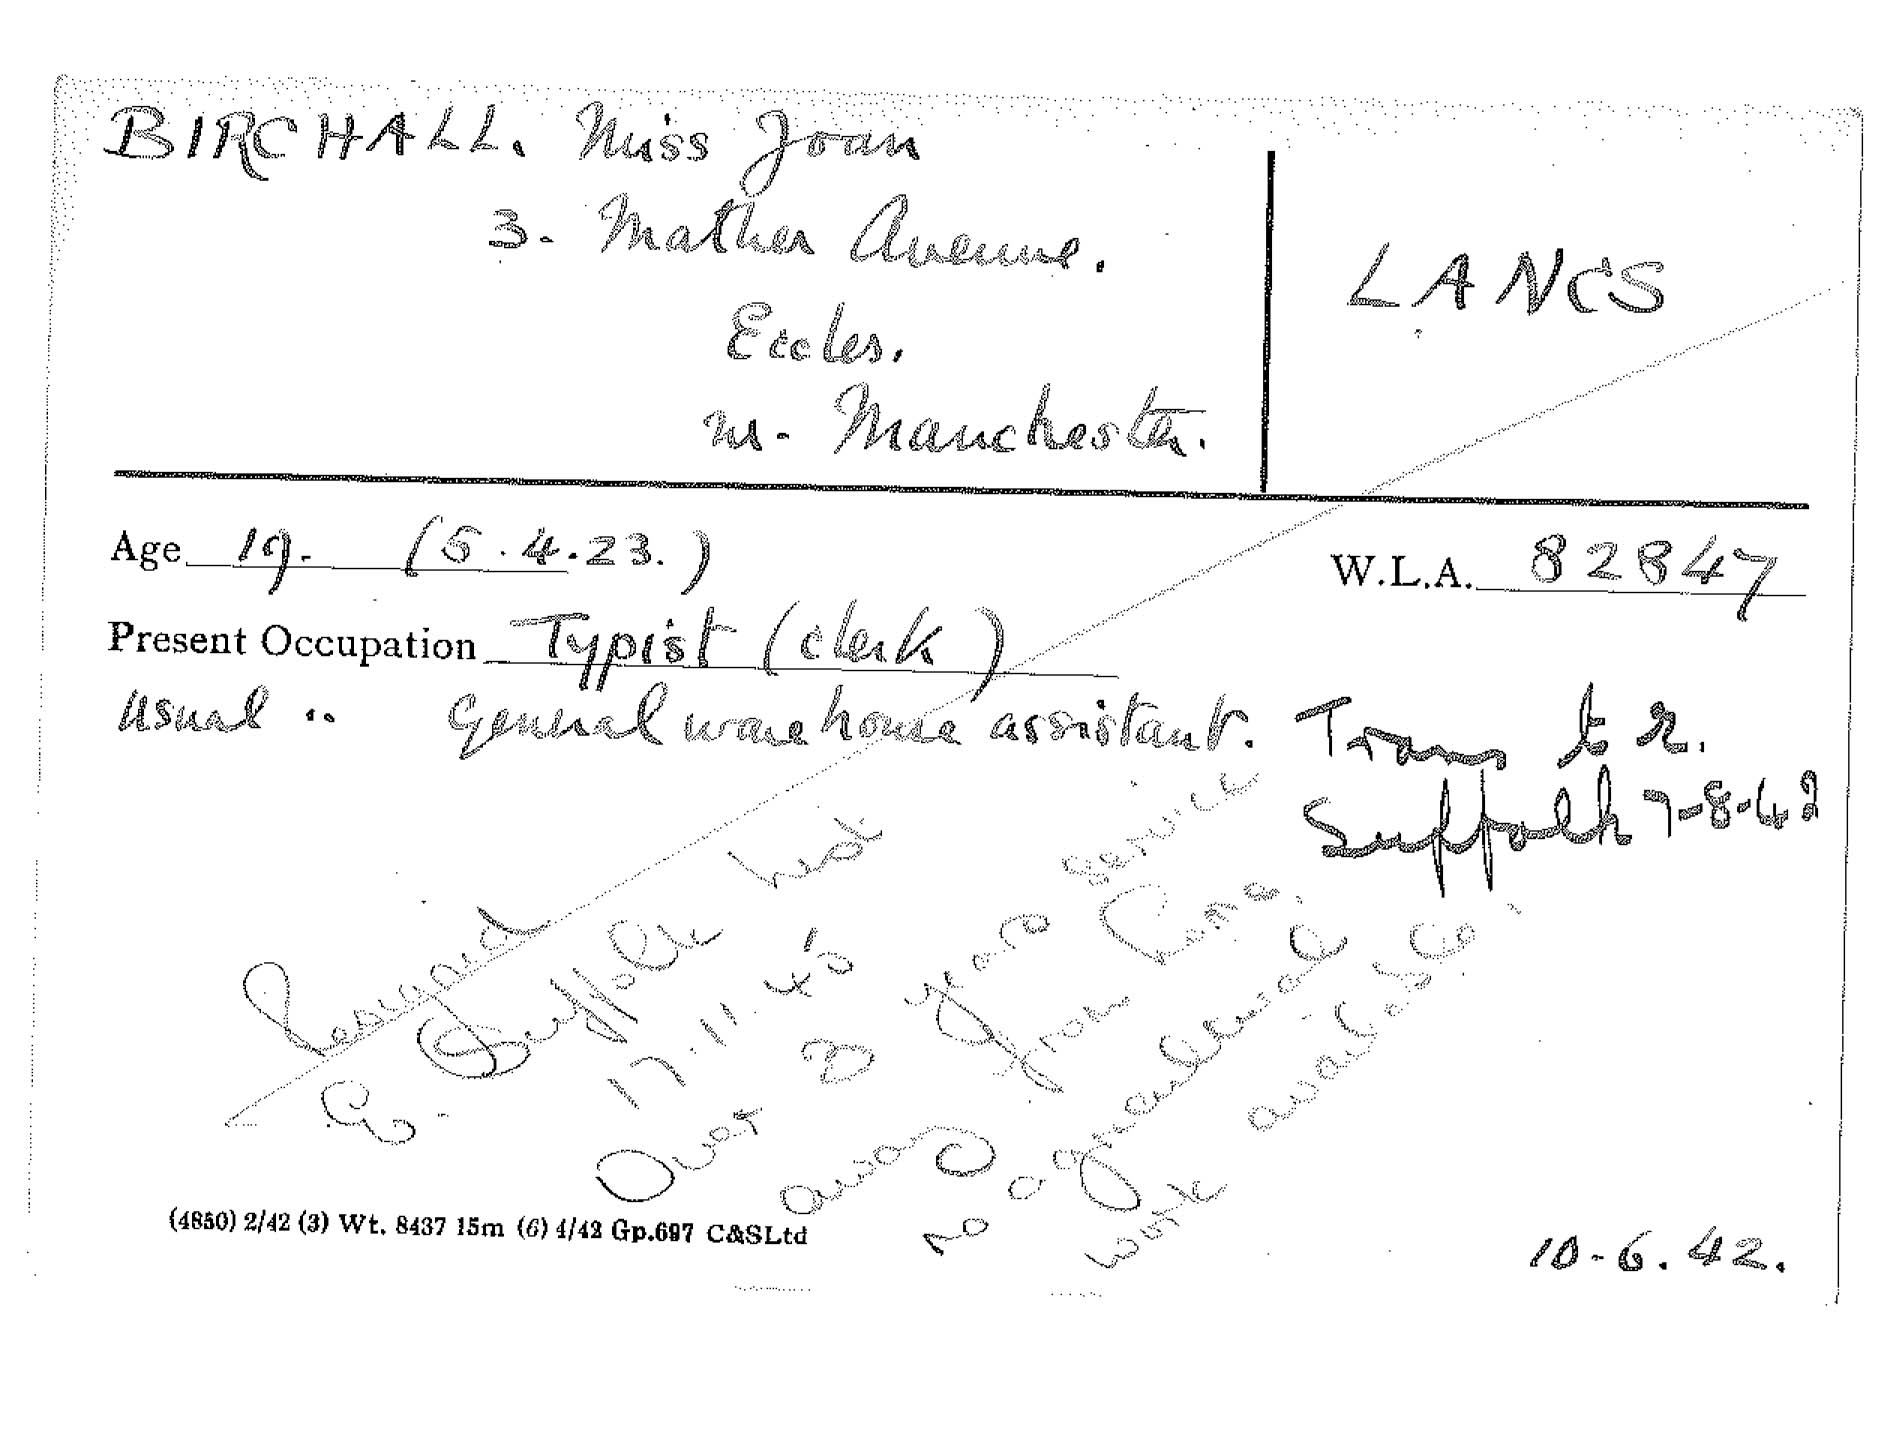 BIRCHALL. Miss Joan
3. Mather Avenue.
Eccles.
nr. Manchester.
LANCS
Age 19. (5.4.23.)
W.L.A. 82847
Present Occupation Typist (clerk)
Usual " General warehouse assistant.
Trans to E.
Suffolk 7-8-42
Resigned
E. Suffolk list
17.11.45
Over 3 years service
away from home.
no agricultural
work available.
(4850) 2/42 (3) Wt. 8437 15m (6) 4/42 Gp.697 C&SLtd
10-6.42.